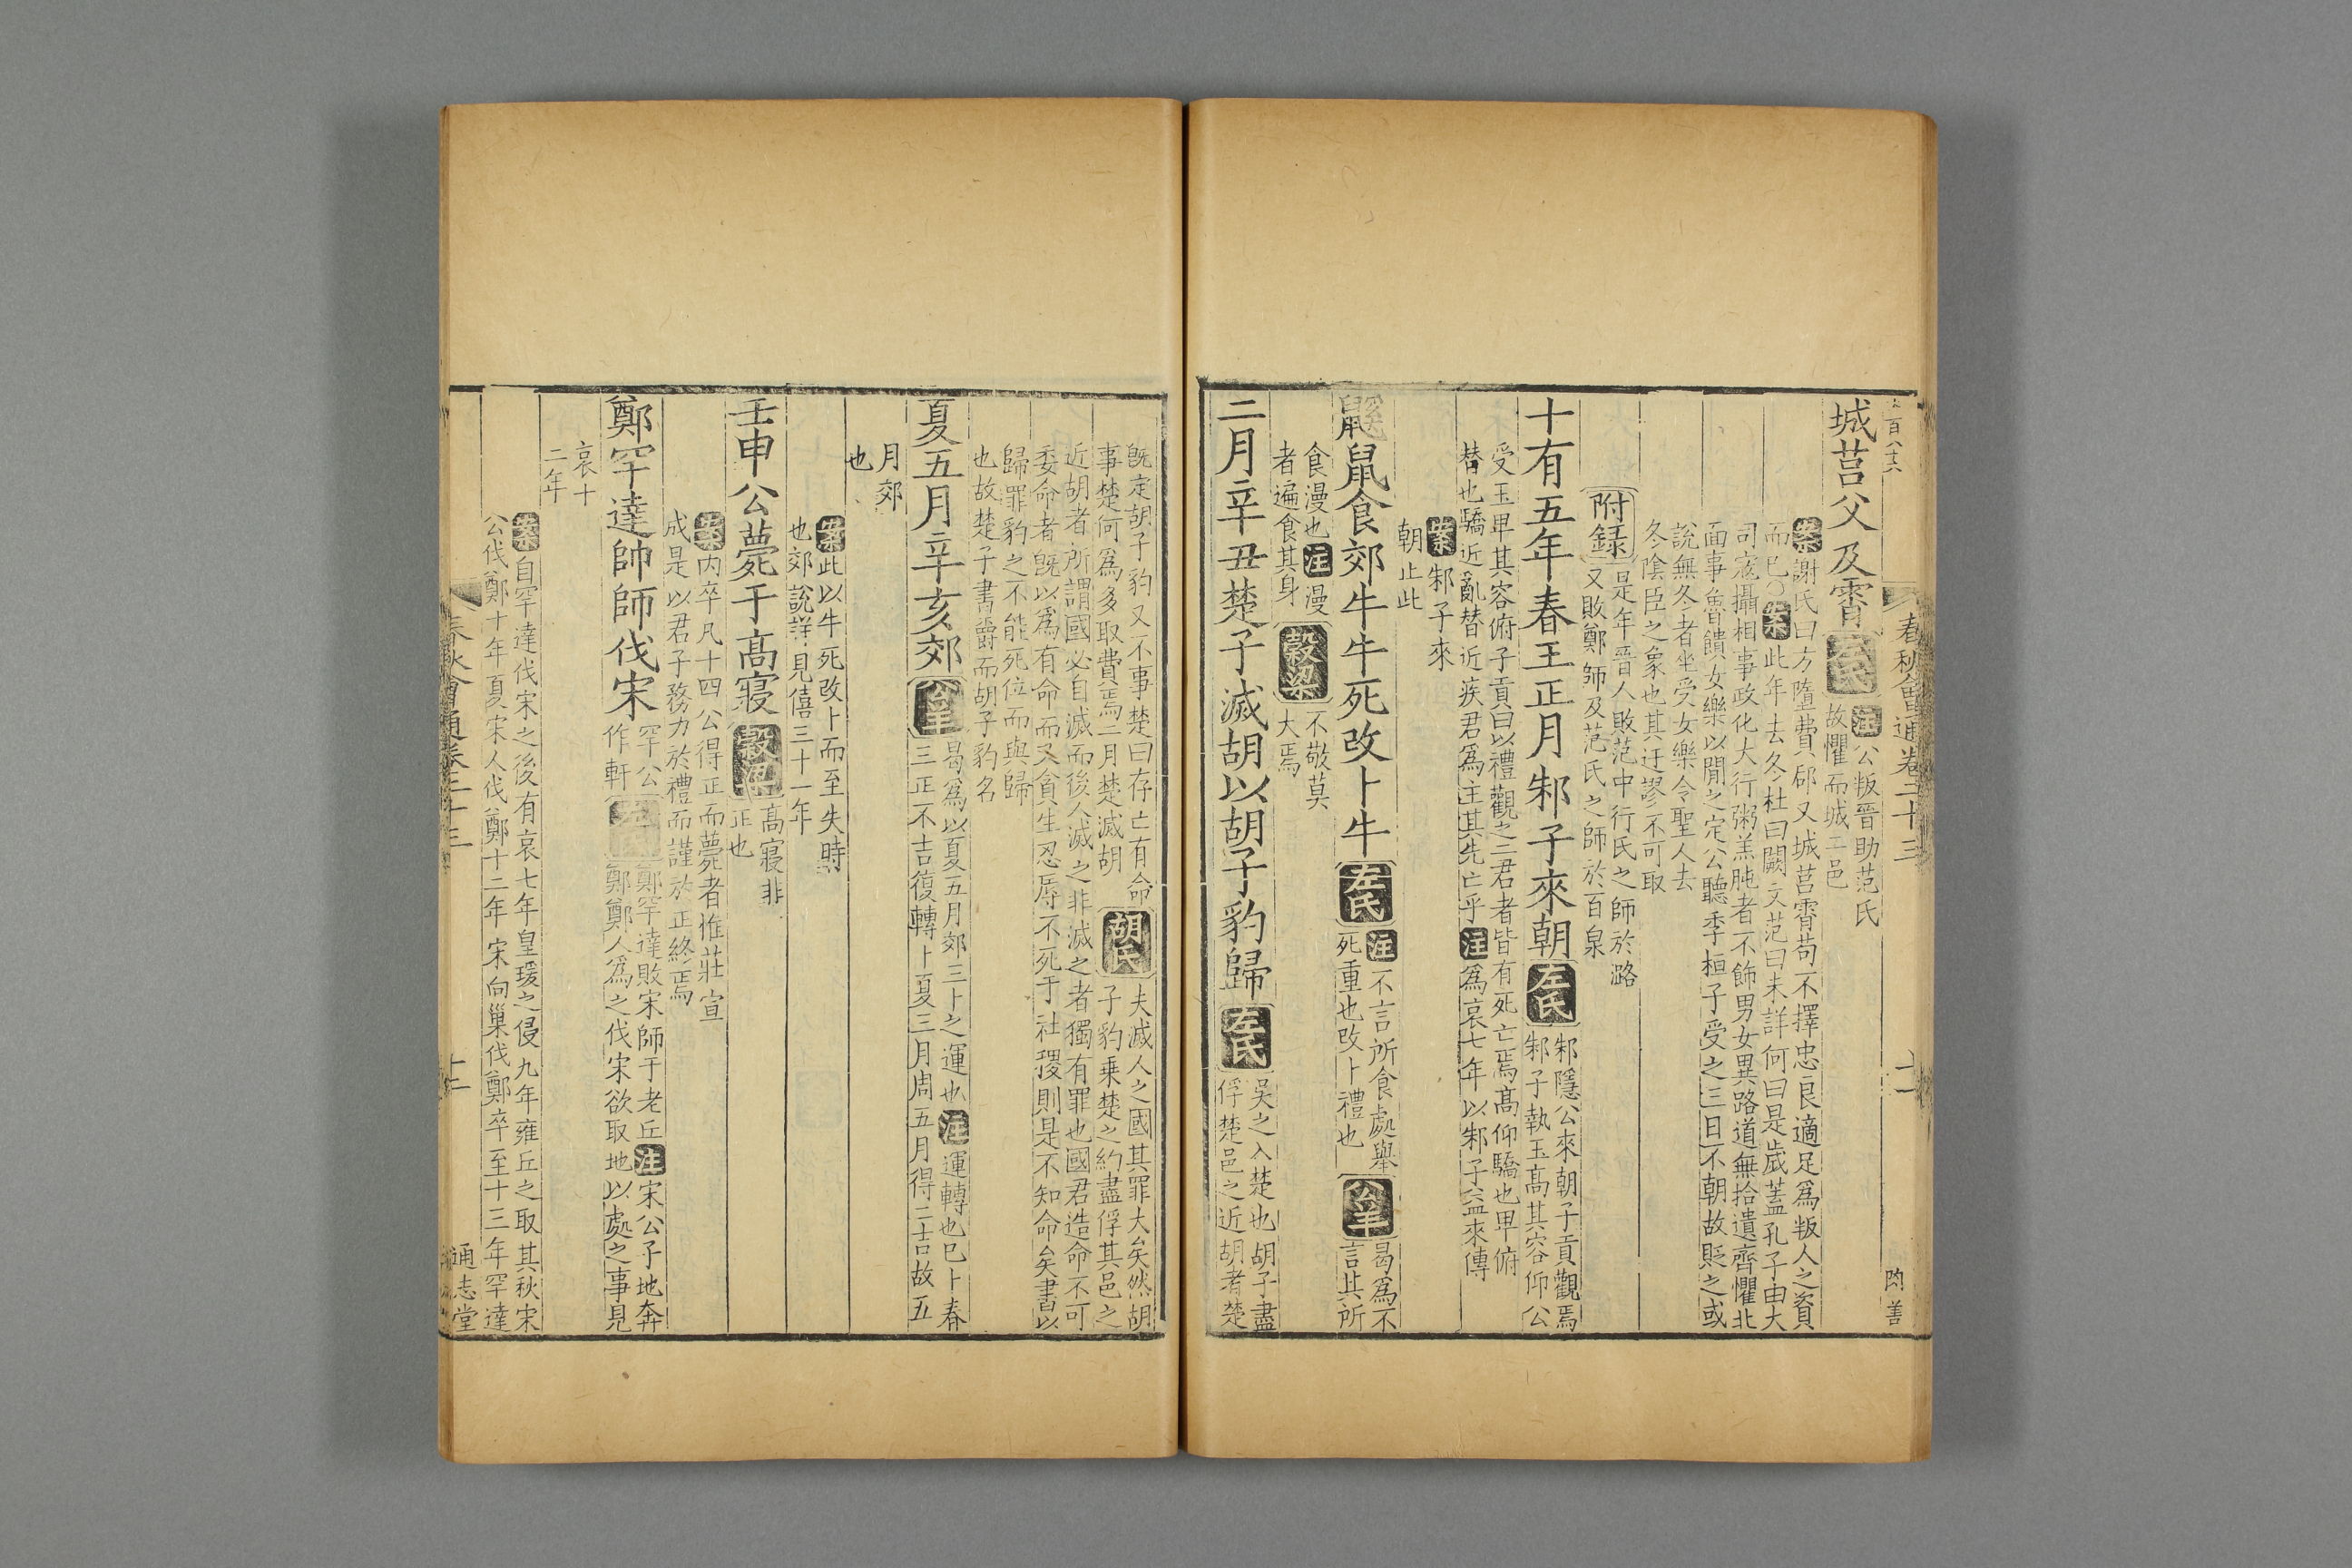 春秋會通卷二十三
十一
城莒父及霄 左氏 注 公叛晉助范氏
故懼而城二邑
案 謝氏曰方隳費郈又城莒霄苟不擇忠良適足爲叛人之資
而已○案此年去冬杜曰闕文范曰未詳何曰是歲葢孔子由大
司寇攝相事政化大行粥羔肫者不飾男女異路道無拾遺齊懼北
面事魯饋女樂以閒之定公聽季桓子受之三日不朝故貶之或
說無冬者坐受女樂令聖人去
冬陰臣之象也其迂謬不可取
附録 是年晉人敗范中行氏之師於潞
又敗鄭師及范氏之師於百泉
十有五年春王正月邾子來朝 左氏 邾隱公來朝子貢觀焉
邾子執玉髙其容仰公
受玉卑其容俯子貢曰以禮觀之二君者皆有死亡焉髙仰驕也卑俯
替也驕近亂替近疾君爲主其先亡乎 注 爲哀七年以邾子益來傳
案 邾子來
朝止此
鼷鼠食郊牛牛死改卜牛 左氏 注 不言所食處舉
死重也改卜禮也 公羊 曷爲不
言其所
食漫也 注 漫
者遍食其身 穀梁 不敬莫
大焉
二月辛丑楚子滅胡以胡子豹歸 左氏 吳之入楚也胡子盡
俘楚邑之近胡者楚
旣定胡子豹又不事楚曰存亡有命
事楚何爲多取費焉二月楚滅胡 胡氏 夫滅人之國其罪大矣然胡
子豹乗楚之約盡俘其邑之
近胡者所謂國必自滅而後人滅之非滅之者獨有罪也國君造命不可
委命者旣以爲有命而又貪生忍辱不死于社稷則是不知命矣書以
歸罪豹之不能死位而與歸
也故楚子書爵而胡子豹名
夏五月辛亥郊 公羊 曷爲以夏五月郊三卜之運也 注 運轉也巳卜春
三正不吉復轉卜夏三月周五月得二吉故五
月郊
也
案 此以牛死改卜而至失時
也郊說詳見僖三十一年
壬申公薨于髙寢 穀梁 髙寢非
正也
案 内卒凡十四公得正而薨者惟莊宣
成是以君子務力於禮而謹於正終焉
鄭罕達帥師伐宋 罕公
作軒 鄭罕達敗宋師于老丘 注 宋公子地奔
鄭鄭人爲之伐宋欲取地以處之事見
哀十
二年
案 自罕達伐宋之後有哀七年皇瑗之侵九年雍丘之取其秋宋
公伐鄭十年夏宋人伐鄭十二年宋向巢伐鄭卒至十三年罕達
春秋會通卷二十三
十二
通志堂